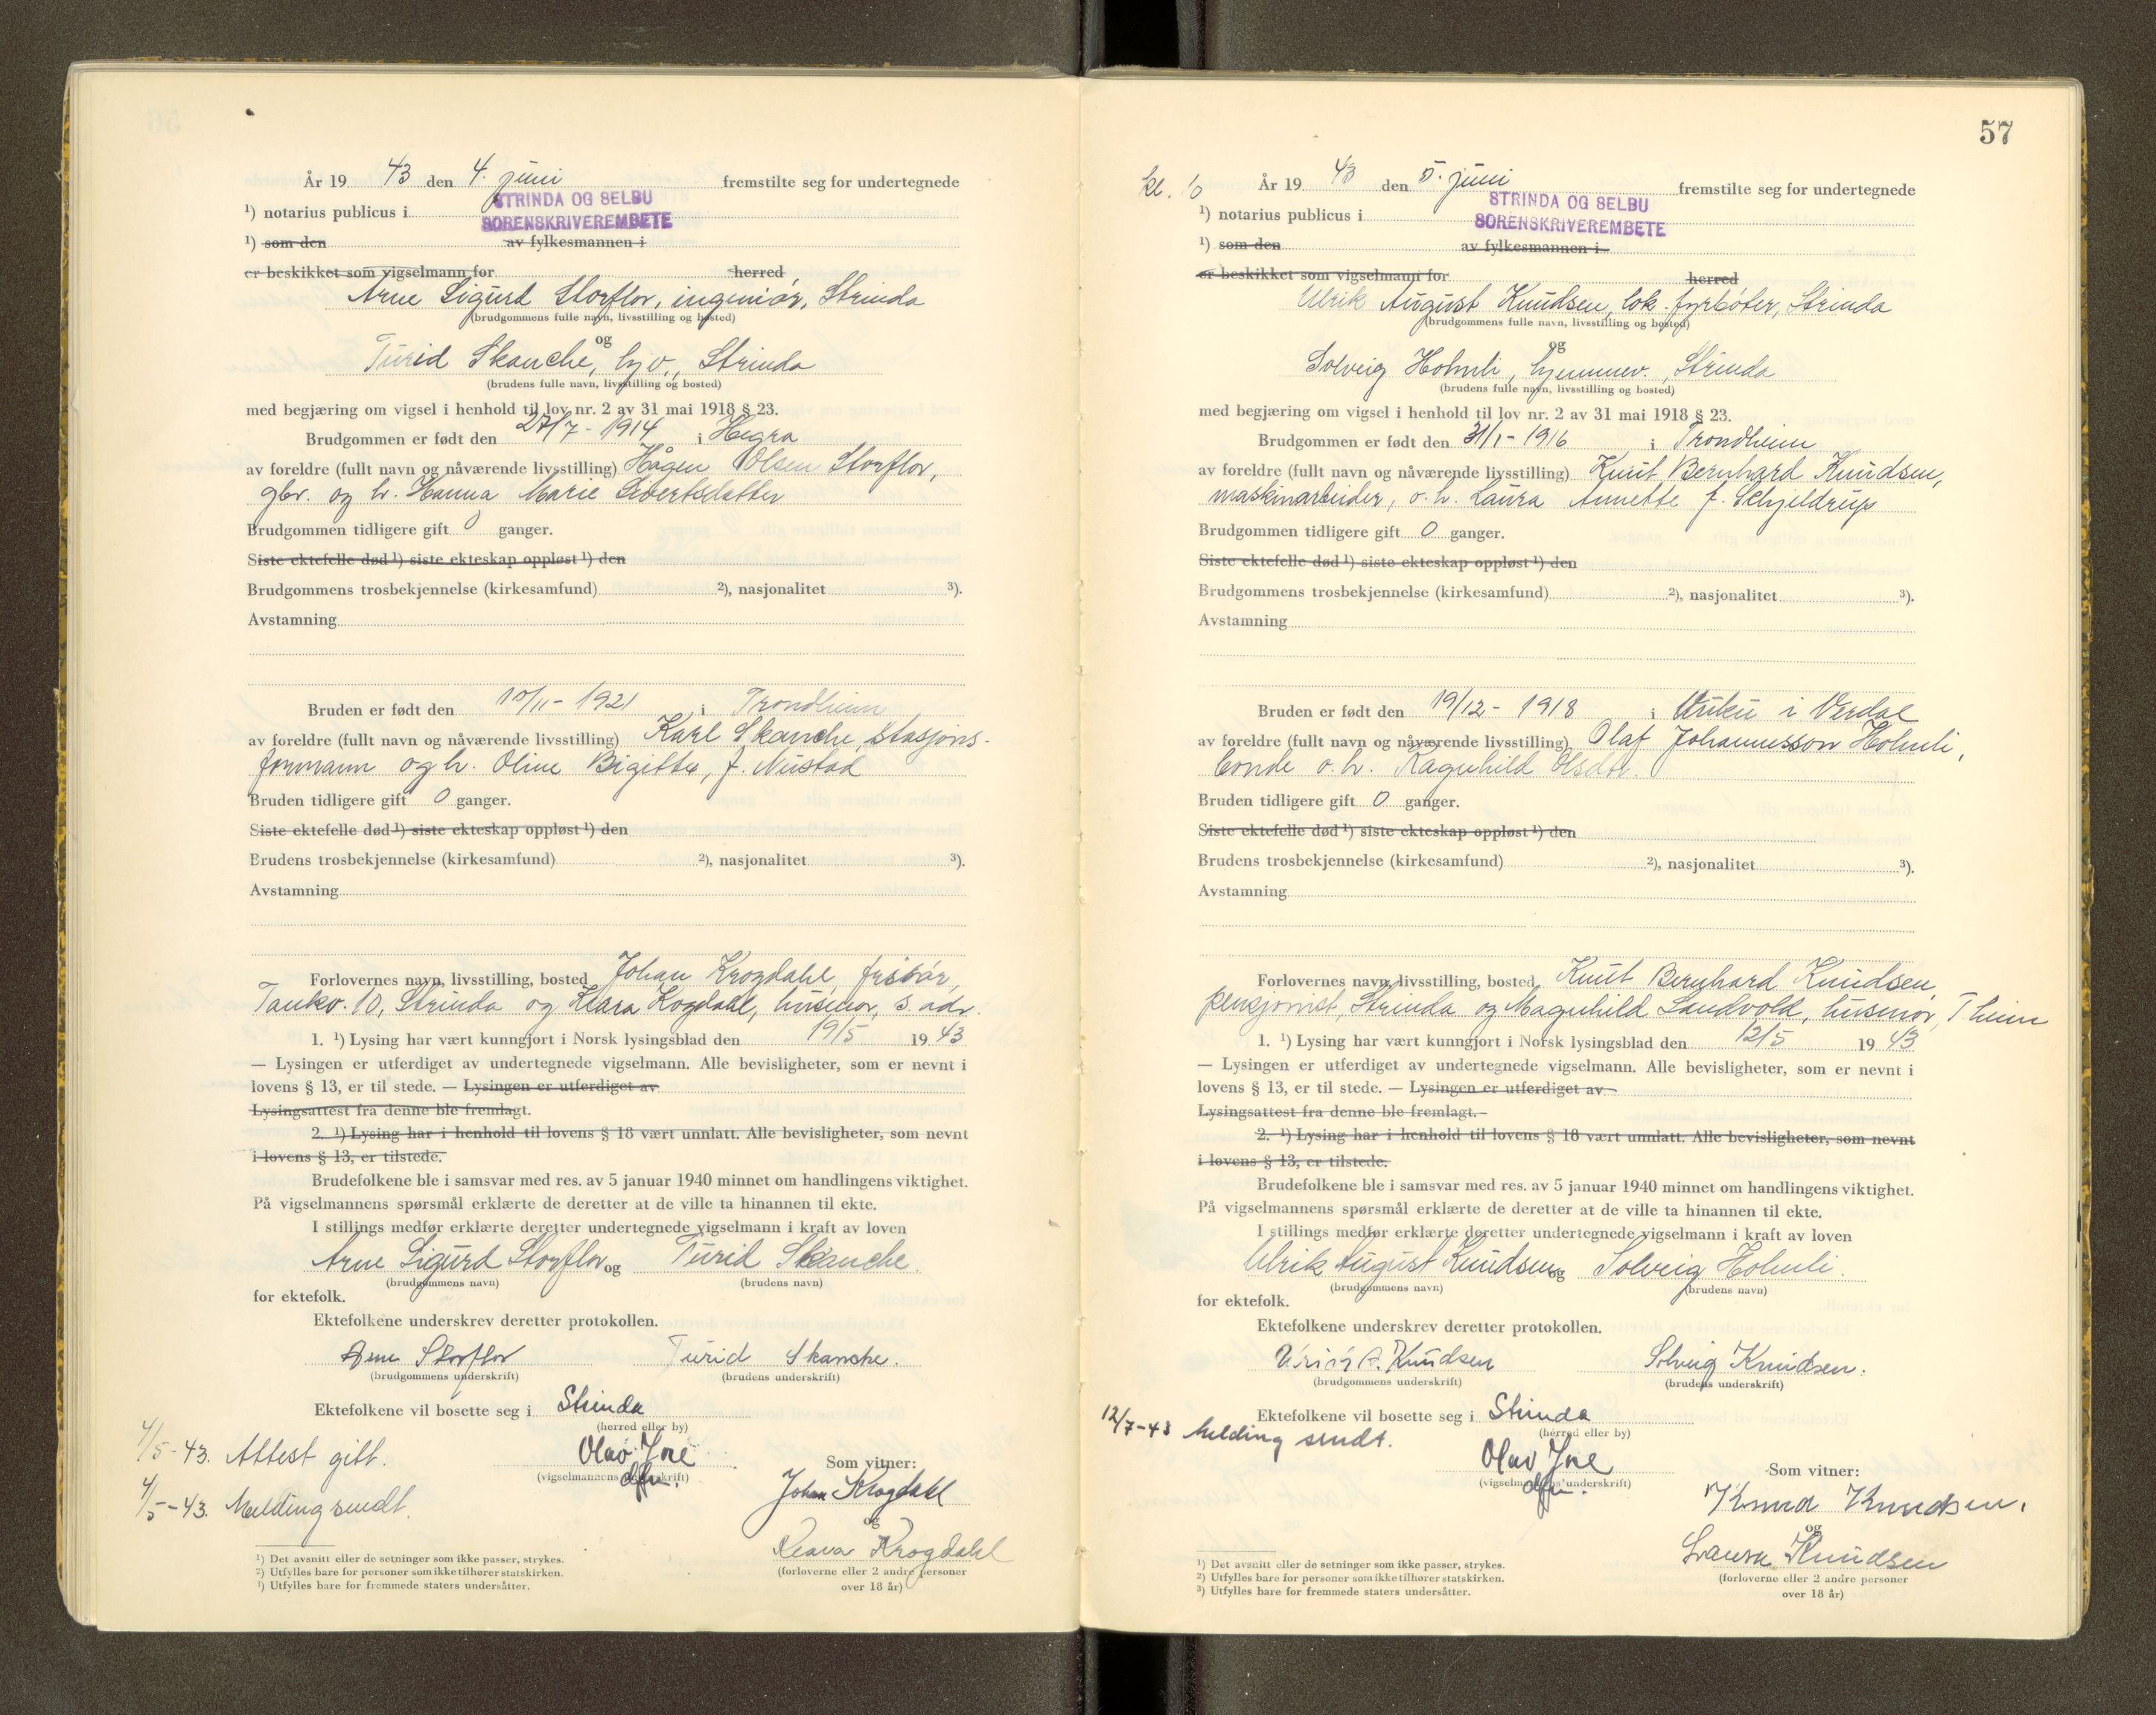 År 19 43 den 4. juni fremstilte seg for undertegnede
¹) notarius publicus i STRINDA OG SELBU
SORENSKRIVEREMBETE
¹) som den av fylkesmannen i
er beskikket som vigselmann for herred
Arne Sigurd Storflor, ingeniør, Strinda
(brudgommens fulle navn, livsstilling og bosted)
og
Turid Skanche, hjv., Strinda
(brudens fulle navn, livsstilling og bosted)
med begjæring om vigsel i henhold til lov nr. 2 av 31 mai 1918 § 23.
Brudgommen er født den 27/7 - 1914 i Hegra
av foreldre (fullt navn og nåværende livsstilling) Hågen Olsen Storflor,
gbr. og h. Hanna Marie Sivertsdatter
Brudgommen tidligere gift 0 ganger.
Siste ektefelle død ¹) siste ekteskap oppløst ¹) den
Brudgommens trosbekjennelse (kirkesamfund) ²), nasjonalitet ³).
Avstamning
Bruden er født den 10/11 - 1921 i Trondheim
av foreldre (fullt navn og nåværende livsstilling) Karl Skanche, stasjons-
formann og h. Oline Bigitte, f. Nustad
Bruden tidligere gift 0 ganger.
Siste ektefelle død ¹) siste ekteskap oppløst ¹) den
Brudens trosbekjennelse (kirkesamfund) ²), nasjonalitet ³).
Avstamning
Forlovernes navn, livsstilling, bosted Johan Krogdahl, frisør,
Tankv. 10, Strinda og Klara Kogdahl, husmor, s. adr.
1. ¹) Lysing har vært kunngjort i Norsk lysingsblad den 19/5 19 43
— Lysingen er utferdiget av undertegnede vigselmann. Alle bevisligheter, som er nevnt i
lovens § 13, er til stede. — Lysingen er utferdiget av
Lysingsattest fra denne ble fremlagt.
2. ¹) Lysing har i henhold til lovens § 18 vært unnlatt. Alle bevisligheter, som nevnt
i lovens § 13, er tilstede.
Brudefolkene ble i samsvar med res. av 5 januar 1940 minnet om handlingens viktighet.
På vigselmannens spørsmål erklærte de deretter at de ville ta hinannen til ekte.
I stillings medfør erklærte deretter undertegnede vigselmann i kraft av loven
Arne Sigurd Storflor og Turid Skanche.
(brudgommens navn) (brudens navn)
for ektefolk.
Ektefolkene underskrev deretter protokollen.
Arne Storflor Turid Skanche.
(brudgommens underskrift) (brudens underskrift)
Ektefolkene vil bosette seg i Strinda
(herred eller by)
4/5-43. Attest gitt.
(vigselmannens underskrift)
Som vitner:
Johan Krogdahl
4/5-43. Melding sendt.
og
Klara Krogdahl
(forloverne eller 2 andre personer
over 18 år)
¹) Det avsnitt eller de setninger som ikke passer, strykes.
²) Utfylles bare for personer som ikke tilhører statskirken.
³) Utfylles bare for fremmede staters undersåtter.
57
kl. 10
År 19 43 den 5. juni fremstilte seg for undertegnede
¹) notarius publicus i STRINDA OG SELBU
SORENSKRIVEREMBETE
¹) som den av fylkesmannen i
er beskikket som vigselmann for herred
Ulrik August Knudsen, lok. fyrbøter, Strinda
(brudgommens fulle navn, livsstilling og bosted)
og
Solveig Holmli, hjemmev., Strinda
(brudens fulle navn, livsstilling og bosted)
med begjæring om vigsel i henhold til lov nr. 2 av 31 mai 1918 § 23.
Brudgommen er født den 31/1 - 1916 i Trondheim
av foreldre (fullt navn og nåværende livsstilling) Knut Bernhard Knudsen,
maskinarbeider, o. h. Laura Annette f. Schjeldrup
Brudgommen tidligere gift 0 ganger.
Siste ektefelle død ¹) siste ekteskap oppløst ¹) den
Brudgommens trosbekjennelse (kirkesamfund) ²), nasjonalitet ³).
Avstamning
Bruden er født den 19/12 - 1918 i Vuku i Verdal
av foreldre (fullt navn og nåværende livsstilling) Olaf Johannesson Holmli,
bonde o. h. Ragnhild Olsdtr.
Bruden tidligere gift 0 ganger.
Siste ektefelle død ¹) siste ekteskap oppløst ¹) den
Brudens trosbekjennelse (kirkesamfund) ²), nasjonalitet ³).
Avstamning
Forlovernes navn, livsstilling, bosted Knut Bernhard Knudsen,
pensjonist, Strinda og Magnhild Sandvold, husmor, Theim
1. ¹) Lysing har vært kunngjort i Norsk lysingsblad den 12/5 19 43
— Lysingen er utferdiget av undertegnede vigselmann. Alle bevisligheter, som er nevnt i
lovens § 13, er til stede. — Lysingen er utferdiget av
Lysingsattest fra denne ble fremlagt.
2. ¹) Lysing har i henhold til lovens § 18 vært unnlatt. Alle bevisligheter, som nevnt
i lovens § 13, er tilstede.
Brudefolkene ble i samsvar med res. av 5 januar 1940 minnet om handlingens viktighet.
På vigselmannens spørsmål erklærte de deretter at de ville ta hinannen til ekte.
I stillings medfør erklærte deretter undertegnede vigselmann i kraft av loven
Ulrik August Knudsen og Solveig Holmli.
(brudgommens navn) (brudens navn)
for ektefolk.
Ektefolkene underskrev deretter protokollen.
Ulrik A. Knudsen Solveig Knudsen.
(brudgommens underskrift) (brudens underskrift)
Ektefolkene vil bosette seg i Strinda
(herred eller by)
12/7-43 Melding sendt.
(vigselmannens underskrift)
Som vitner:
Knud Knudsen.
og
Laura Knudsen
(forloverne eller 2 andre personer
over 18 år)
¹) Det avsnitt eller de setninger som ikke passer, strykes.
²) Utfylles bare for personer som ikke tilhører statskirken.
³) Utfylles bare for fremmede staters undersåtter.